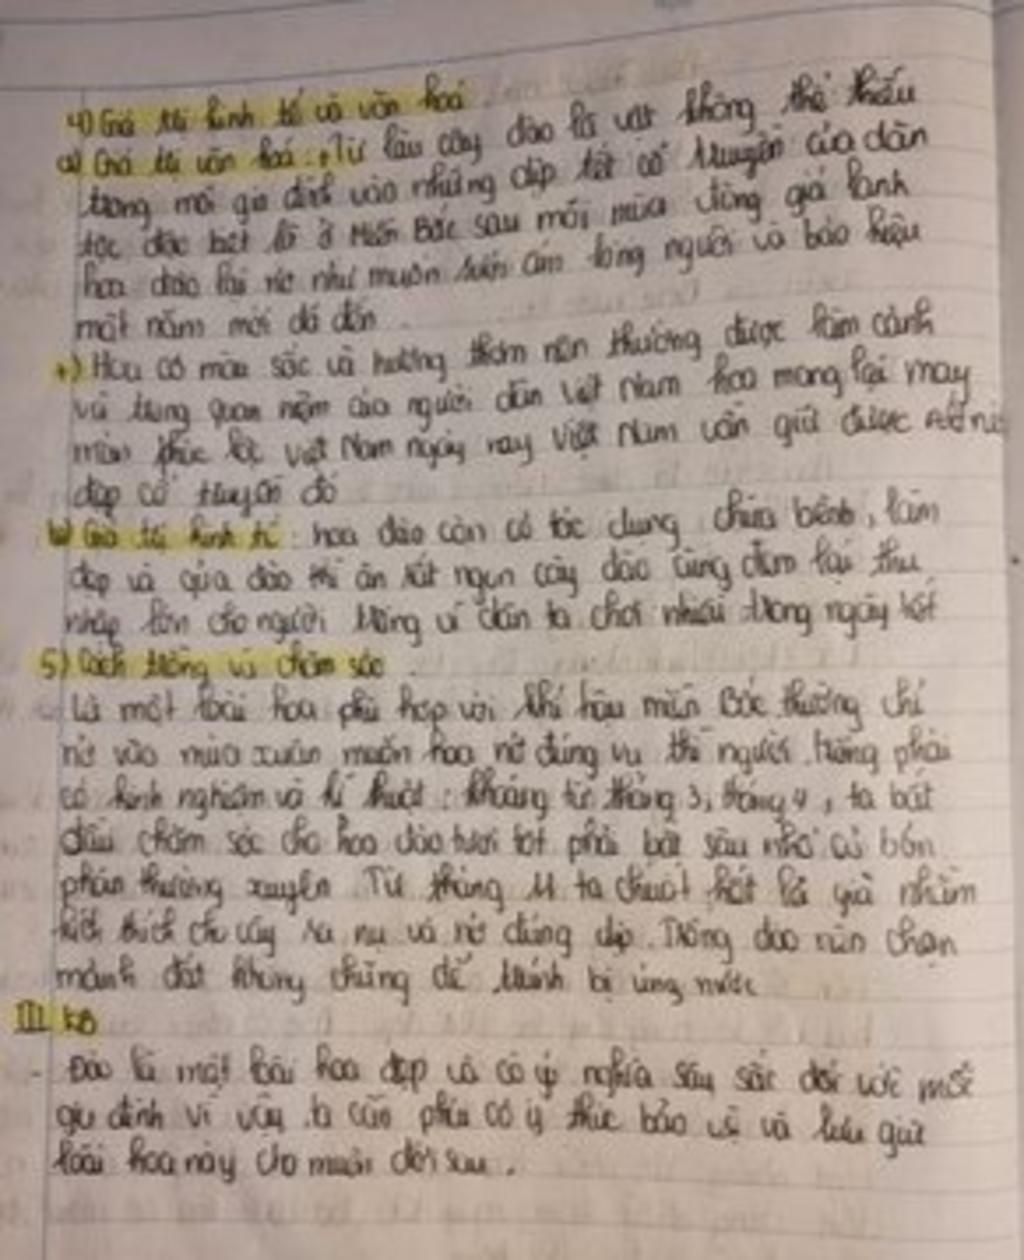 4) Giá trị kinh tế và văn hoá
a) Giá trị văn hoá: Từ lâu cây đào là vật không thể thiếu
trong mỗi gia đình vào những dịp tết cổ truyền của dân
tộc đặc biệt là ở Miền Bắc sau mỗi mùa đông giá lạnh
hoa đào lại nở như muốn sưởi ấm lòng người và báo hiệu
một năm mới đã đến.
+) Hoa có màu sắc và hương thơm nên thường được làm cảnh
và trong quan niệm của người dân việt Nam hoa mang lại may
mắn phúc lộc việt Nam ngày nay Việt Nam vẫn giữ được nét
đẹp cổ truyền đó
b) Giá trị kinh tế: hoa đào còn có tác dụng chữa bệnh, làm
đẹp và qủa đào thì ăn rất ngon cây đào cũng đem lại thu
nhập lớn cho người trồng vì dân ta chơi nhiều trong ngày tết
5) Cách trồng và chăm sóc
Là một loài hoa phù hợp với khí hậu miền Bắc thường chỉ
nở vào mùa xuân muốn hoa nở đúng vụ thì người trồng phải
có kinh nghiệm và kĩ thuật: khoảng từ tháng 3, tháng 4, ta bắt
đầu chăm sóc cho hoa đào tươi tốt phải bắt sâu nhổ cỏ bón
phân thường xuyên Từ tháng 11 ta tuốt hết lá già nhằm
kích thích cho cây ra nụ và nở đúng dịp. Trồng đào nên chọn
mảnh đất không trũng để tránh bị úng nước
III KB
- Đào là một loài hoa đẹp và có ý nghĩa sâu sắc đối với mỗi
gia đình vì vậy ta cần phải có ý thức bảo vệ và lưu giữ
loài hoa này cho muôn đời sau.